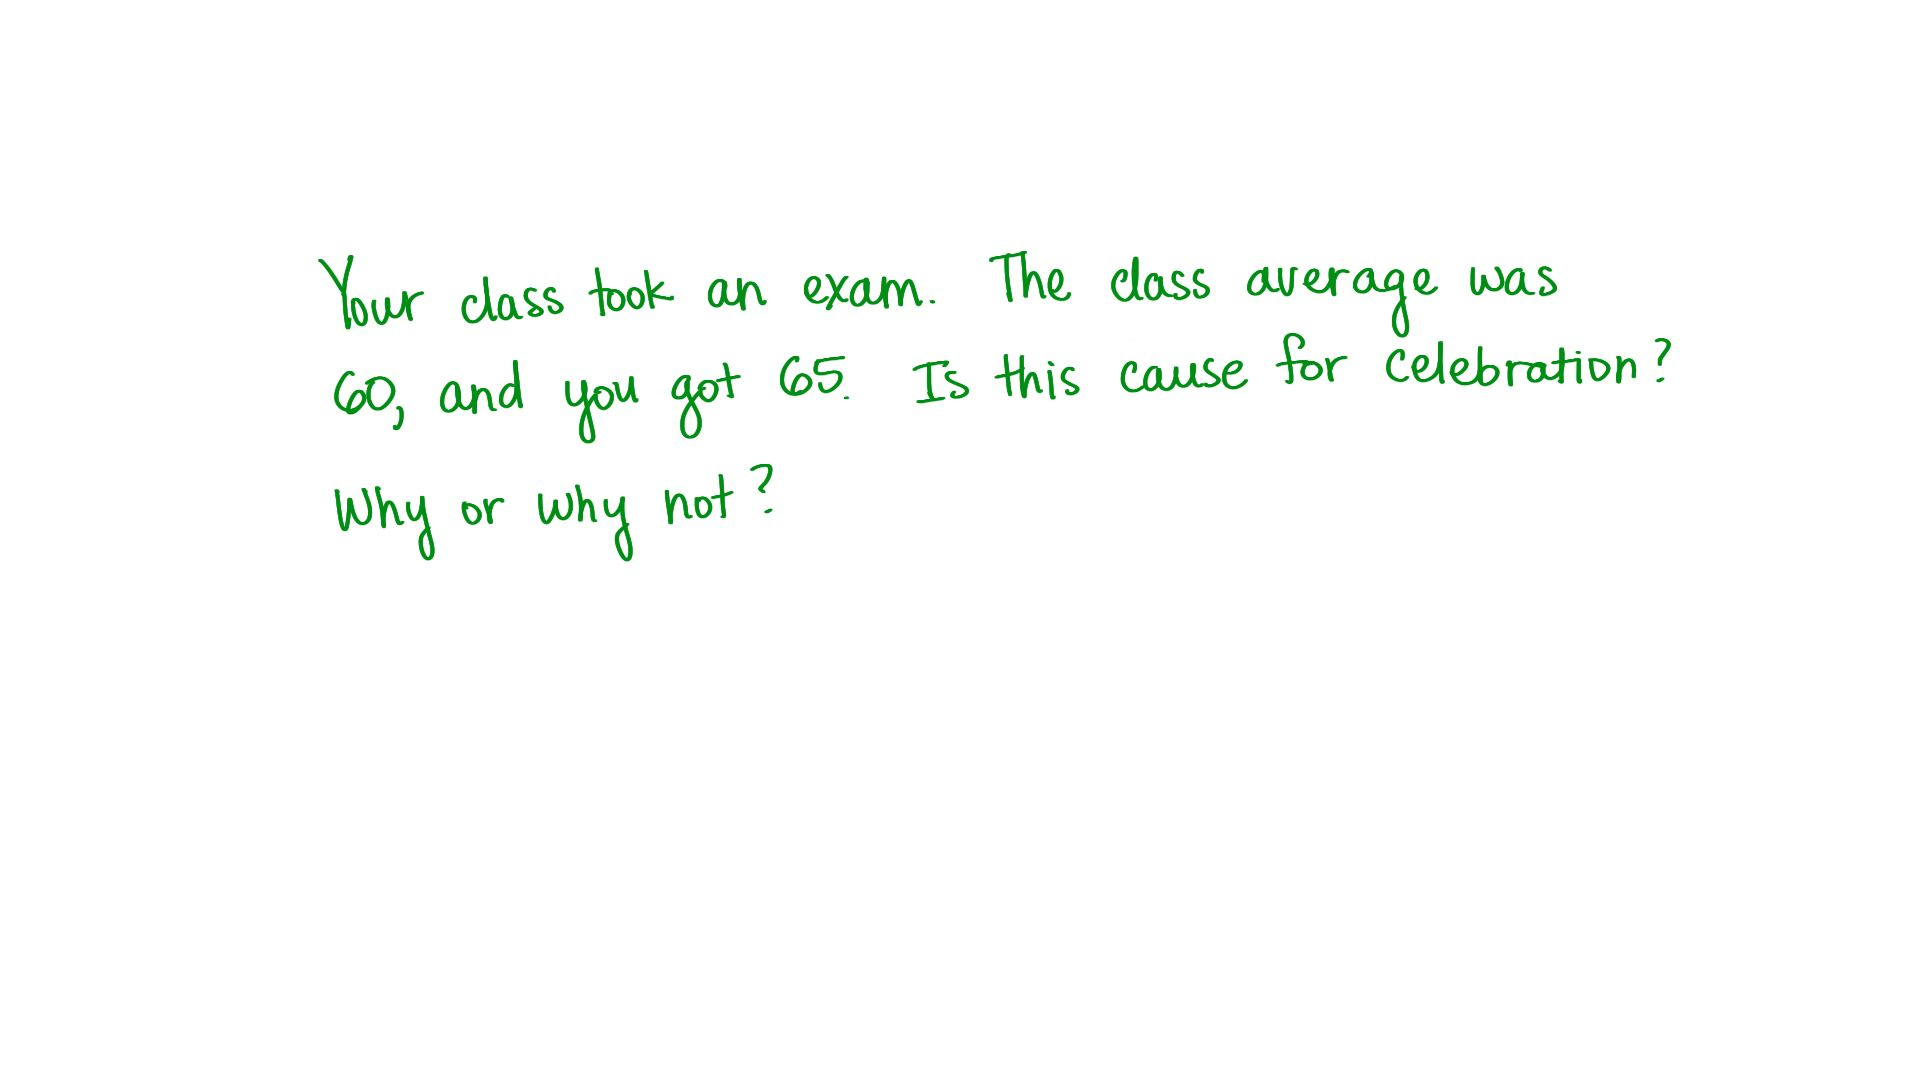 Your class took an exam. The class average was
60, and you got 65. Is this cause for celebration?
Why or why not?